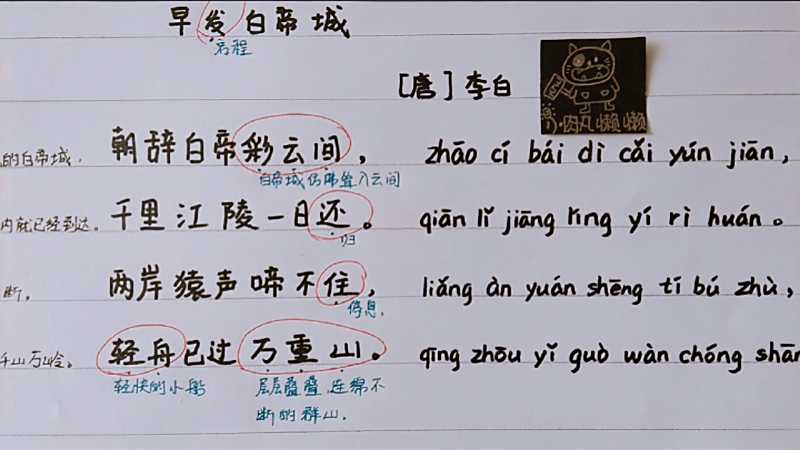 早发白帝城
启程
[唐] 李白
小·肉丸懒懒
的白帝城. 朝辞白帝彩云间, zhāo cí bái dì cǎi yún jiān,
白帝城仿佛耸入云间
内就已经到达。 千里江陵一日还。 qiān lǐ jiāng líng yí rì huán。
归
断. 两岸猿声啼不住, liǎng àn yuán shēng tí bú zhù,
停息.
千山万岭。 轻舟已过万重山。 qīng zhōu yǐ guò wàn chóng shān
轻快的小船 层层叠叠、连绵不
断的群山.